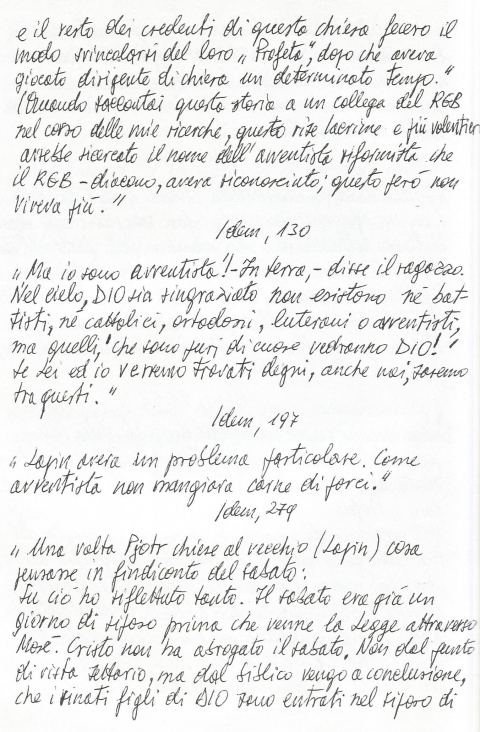 e il resto dei credenti di questa chiesa fecero il
modo svincolarsi del loro „Profeta", dopo che aveva
giocato dirigente di chiesa un determinato tempo."
(Quando raccontai questa storia a un collega del KGB
nel corso delle mie ricerche, questo rise lacrime e più volentieri
avrebbe ricercato il nome dell'avventista riformista che
il KGB - diacono, aveva riconosciuto; questo però non
viveva più."
Idem, 130
„Ma io sono avventista! - In terra, - disse il ragazzo.
Nel cielo, DIO sia ringraziato non esistono né bat-
tisti, né cattolici, ortodossi, luterani o avventisti,
ma quelli, 'che sono puri di cuore vedranno DIO!'
se sei ed io verremo trovati degni, anche noi, saremo
tra questi."
Idem, 197
„Lapin aveva un problema particolare. Come
avventista non mangiava carne di porci."
Idem, 279
„Una volta Pjotr chiese al vecchio (Lapin) cosa
pensasse in findiconto del sabato:
Su ciò ho riflettuto tanto. Il sabato era già un
giorno di riposo prima che venne la Legge attraverso
Mosè. Cristo non ha abrogato il sabato. Non dal punto
di vista settario, ma dal biblico vengo a conclusione,
che i rinati figli di DIO sono entrati nel riposo di